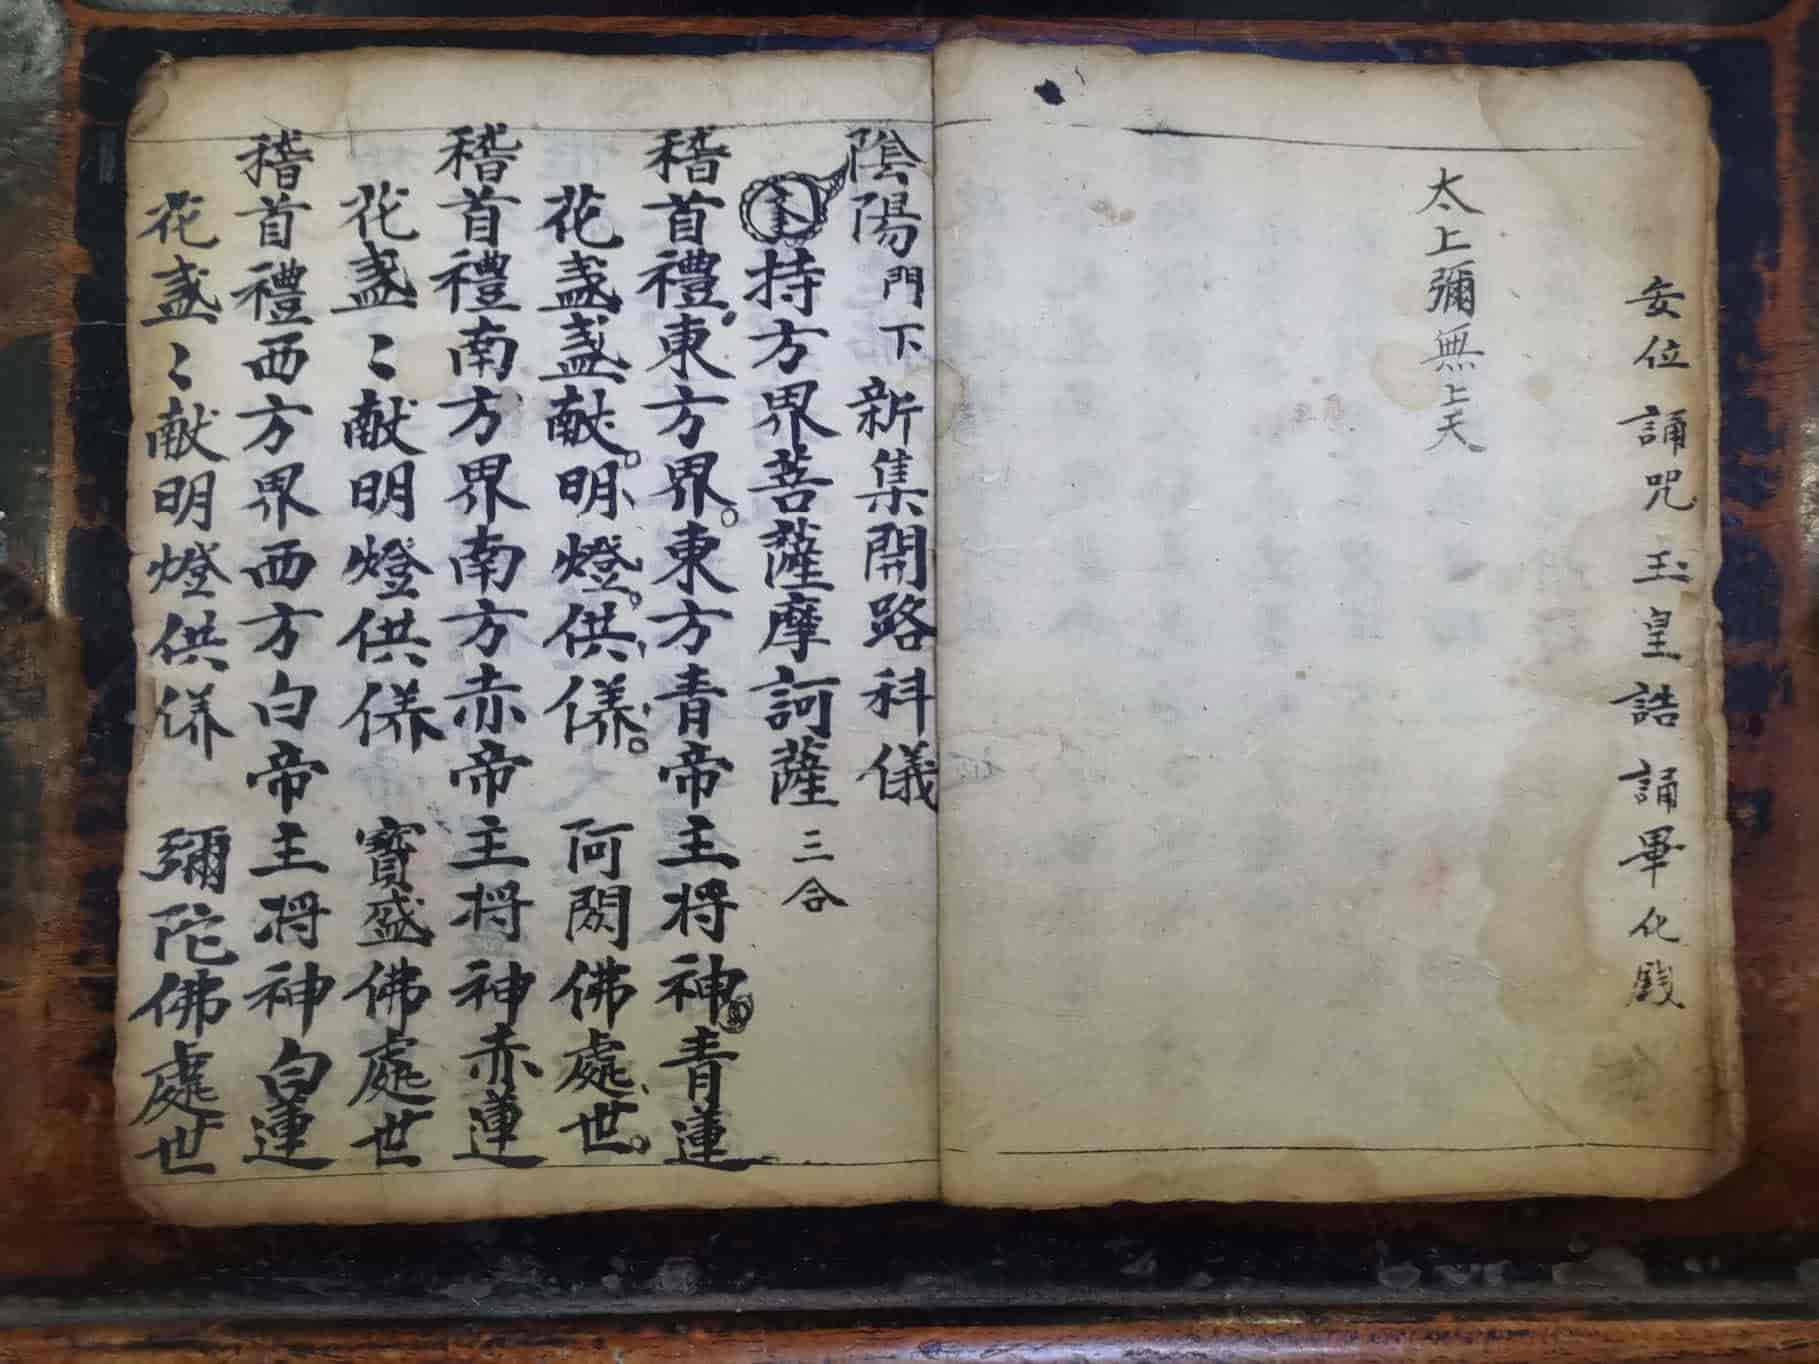 安位 誦咒 玉皇誥 誦畢化殿
太上彌無上天
陰陽門下新集開路科儀
持方界菩薩摩訶薩 三合
稽首禮東方界東方青帝主将神青蓮
花盞盞献明燈供養 阿閦佛處世
稽首禮南方界南方赤帝主将神赤蓮
花盞〻献明燈供養 寶盛佛處世
稽首禮西方界西方白帝主将神白蓮
花盞〻献明燈供養 彌陀佛處世